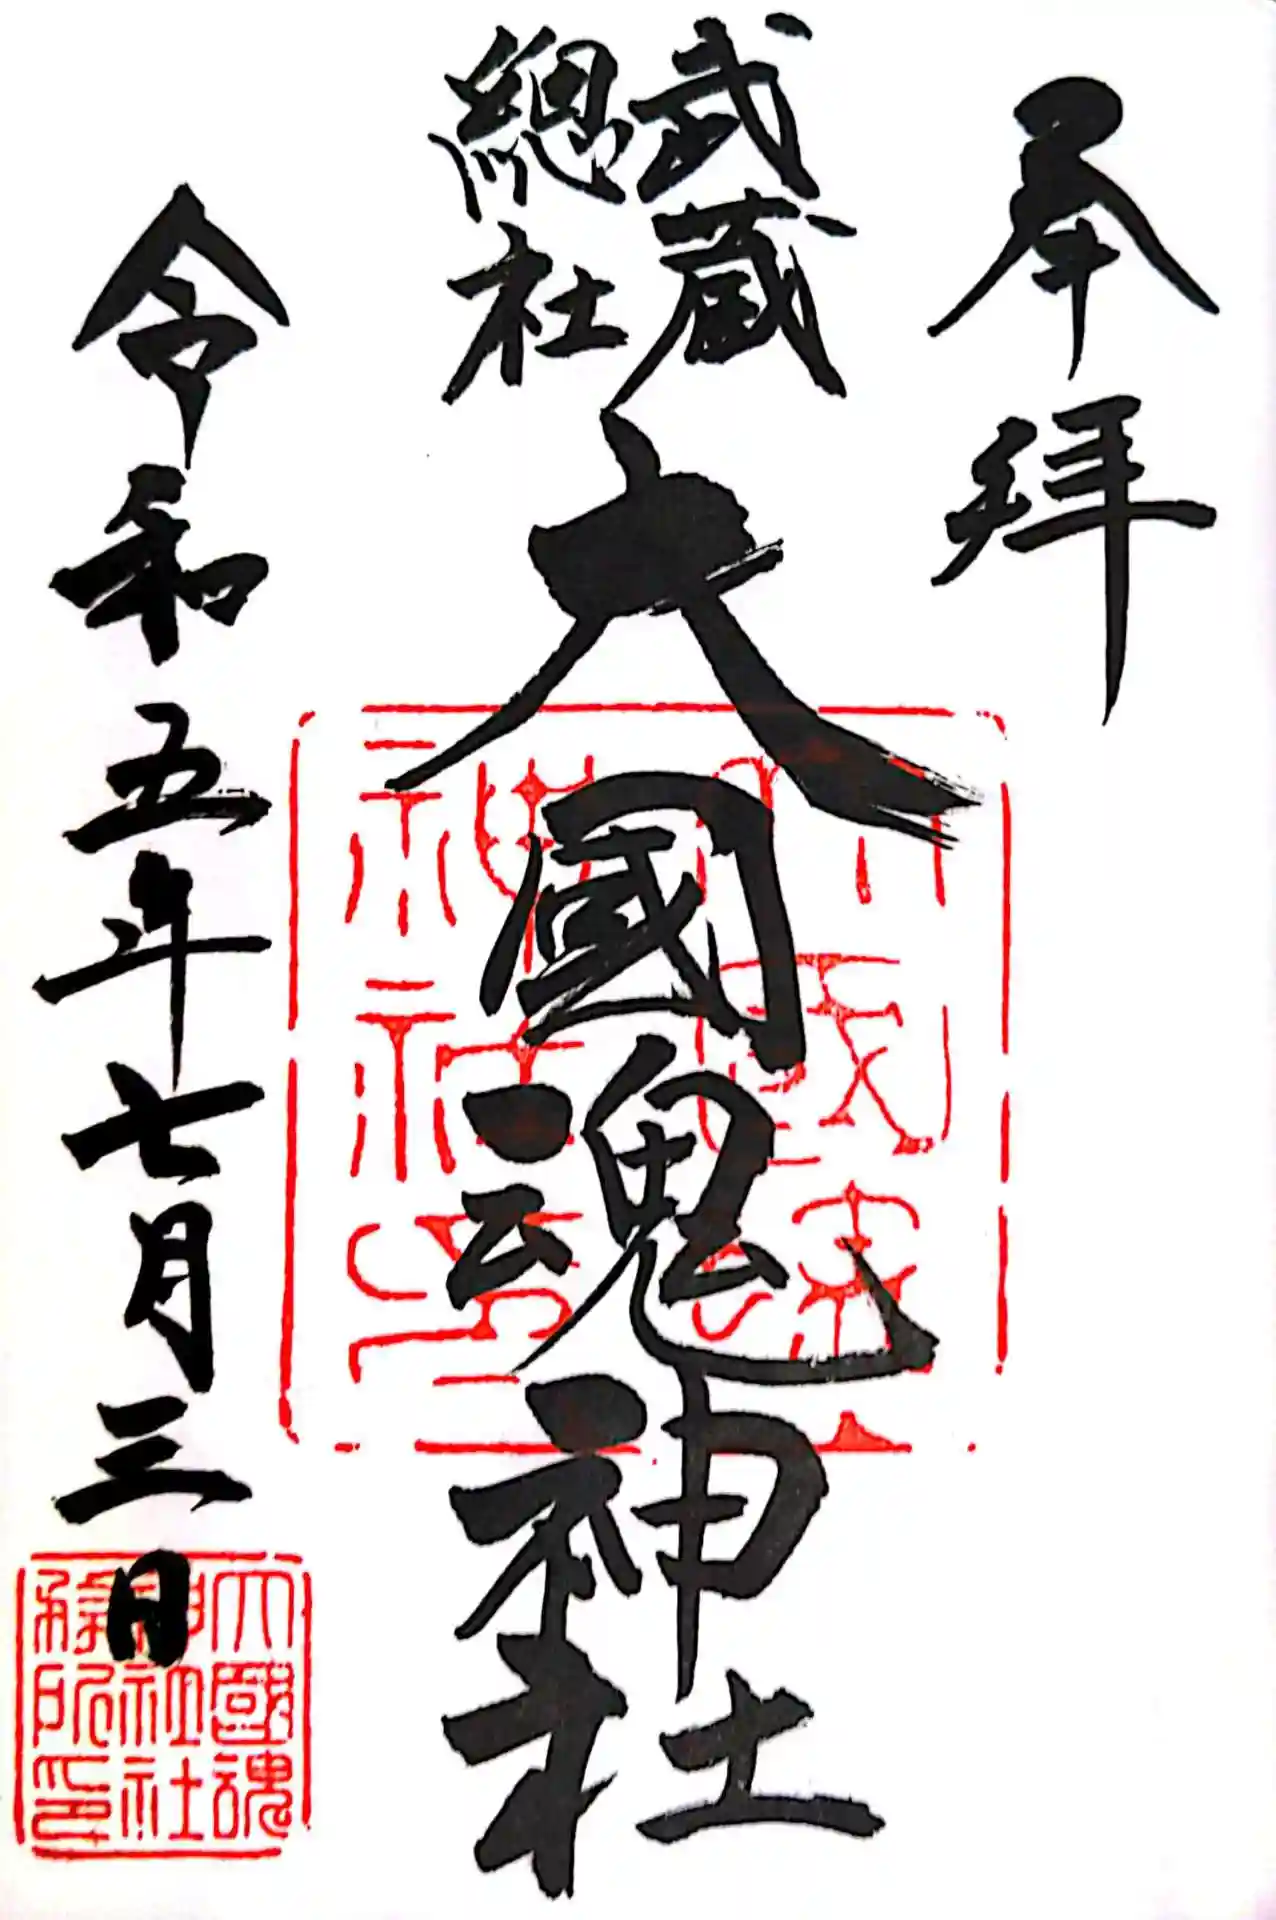 奉拜
武蔵
總社
大國魂神社
令和五年七月三日
大國魂
神社社
務所印